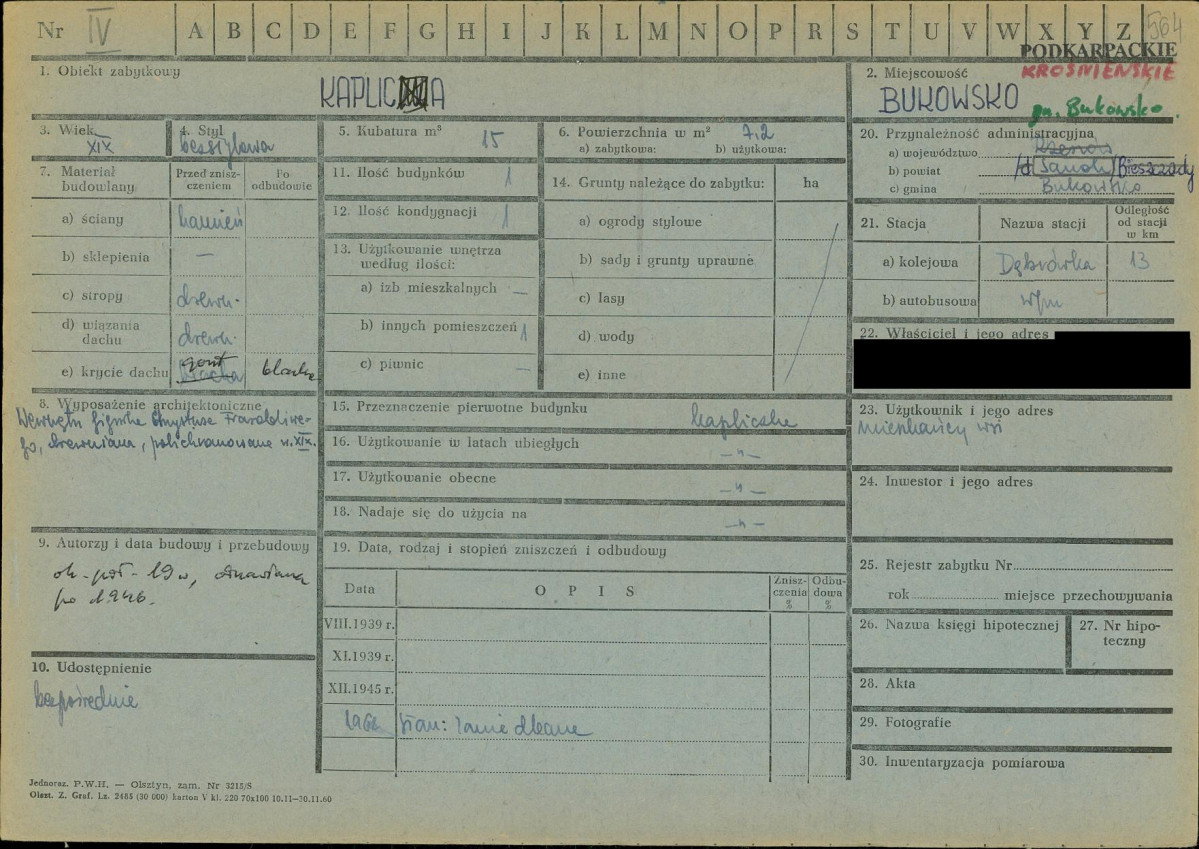 Nr IV A B C D E F G H I J K L M N O P R S T U V W X Y Z 564
PODKARPACKIE
KROŚNIEŃSKIE
1. Obiekt zabytkowy
KAPLICA
2. Miejscowość
BUKOWSKO
gm. Bukowsko.
3. Wiek
XIX
4. Styl
bezstylowa
5. Kubatura m³ 15
6. Powierzchnia w m² 7,2
a) zabytkowa: b) użytkowa:
7. Materiał budowlany
Przed zniszczeniem
Po odbudowie
a) ściany kamień
b) sklepienia —
c) stropy drewn.
d) wiązania dachu drewn.
e) krycie dachu gont blacha
8. Wyposażenie architektoniczne
Wewnątrz figurka Chrystusa Frasobliwe-
go, drewniana, polichromowana w. XIX.
9. Autorzy i data budowy i przebudowy
ok. poł. 19 w, odnawiana
po 1946.
10. Udostępnienie
bezpośrednie
11. Ilość budynków 1
12. Ilość kondygnacji 1
13. Użytkowanie wnętrza według ilości:
a) izb mieszkalnych —
b) innych pomieszczeń 1
c) piwnic —
14. Grunty należące do zabytku: ha
a) ogrody stylowe
b) sady i grunty uprawne
c) lasy
d) wody
e) inne
15. Przeznaczenie pierwotne budynku kapliczka
16. Użytkowanie w latach ubiegłych —"—
17. Użytkowanie obecne —"—
18. Nadaje się do użycia na —"—
19. Data, rodzaj i stopień zniszczeń i odbudowy
Data OPIS Zniszczenia % Odbudowa %
VIII.1939 r.
XI.1939 r.
XII.1945 r.
stan: zaniedbane
20. Przynależność administracyjna
a) województwo Rzeszów
b) powiat Sanok Bieszczady
c) gmina Bukowsko
21. Stacja Nazwa stacji Odległość od stacji w km
a) kolejowa Dąbrówka 13
b) autobusowa w/m
22. Właściciel i jego adres
23. Użytkownik i jego adres
mieszkańcy wsi
24. Inwestor i jego adres
25. Rejestr zabytku Nr
rok miejsce przechowywania
26. Nazwa księgi hipotecznej
27. Nr hipoteczny
28. Akta
29. Fotografie
30. Inwentaryzacja pomiarowa
Jednoraz. P.W.H. — Olsztyn, zam. Nr 3215/S
Olszt. Z. Graf. Lz. 2485 (30 000) karton V kl. 220 70x100 10.11—30.11.60